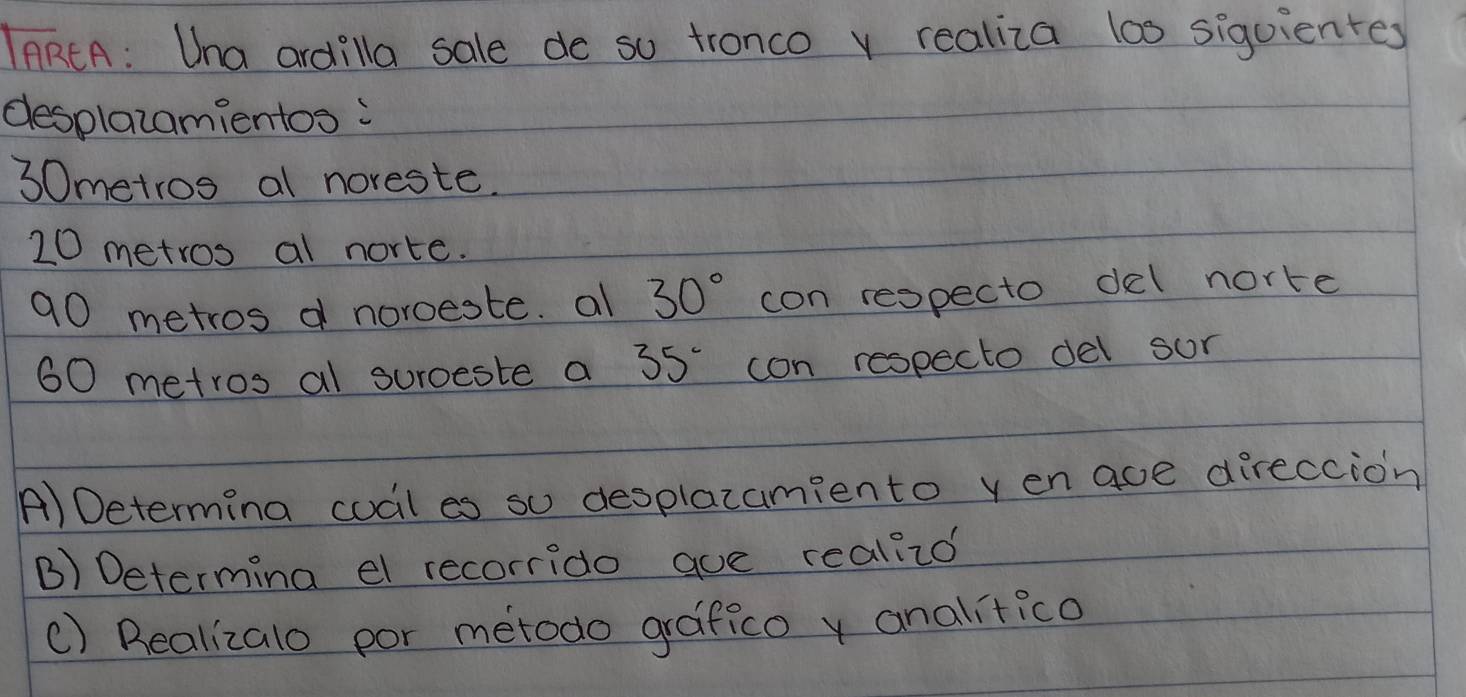 TAREA: Una ardilla sale de su tronco y realiza los siguientes
desplazamientos:
30metros al noreste.
20 metros al norte.
90 metros al noroeste. al 30° con respecto del norte
60 metros al suroeste a 35° con respecto del sur
A) Determina cuál es su desplazamiento y en que dirección
B) Determina el recorrido que realizó
C) Realízalo por método gráfico y analítico